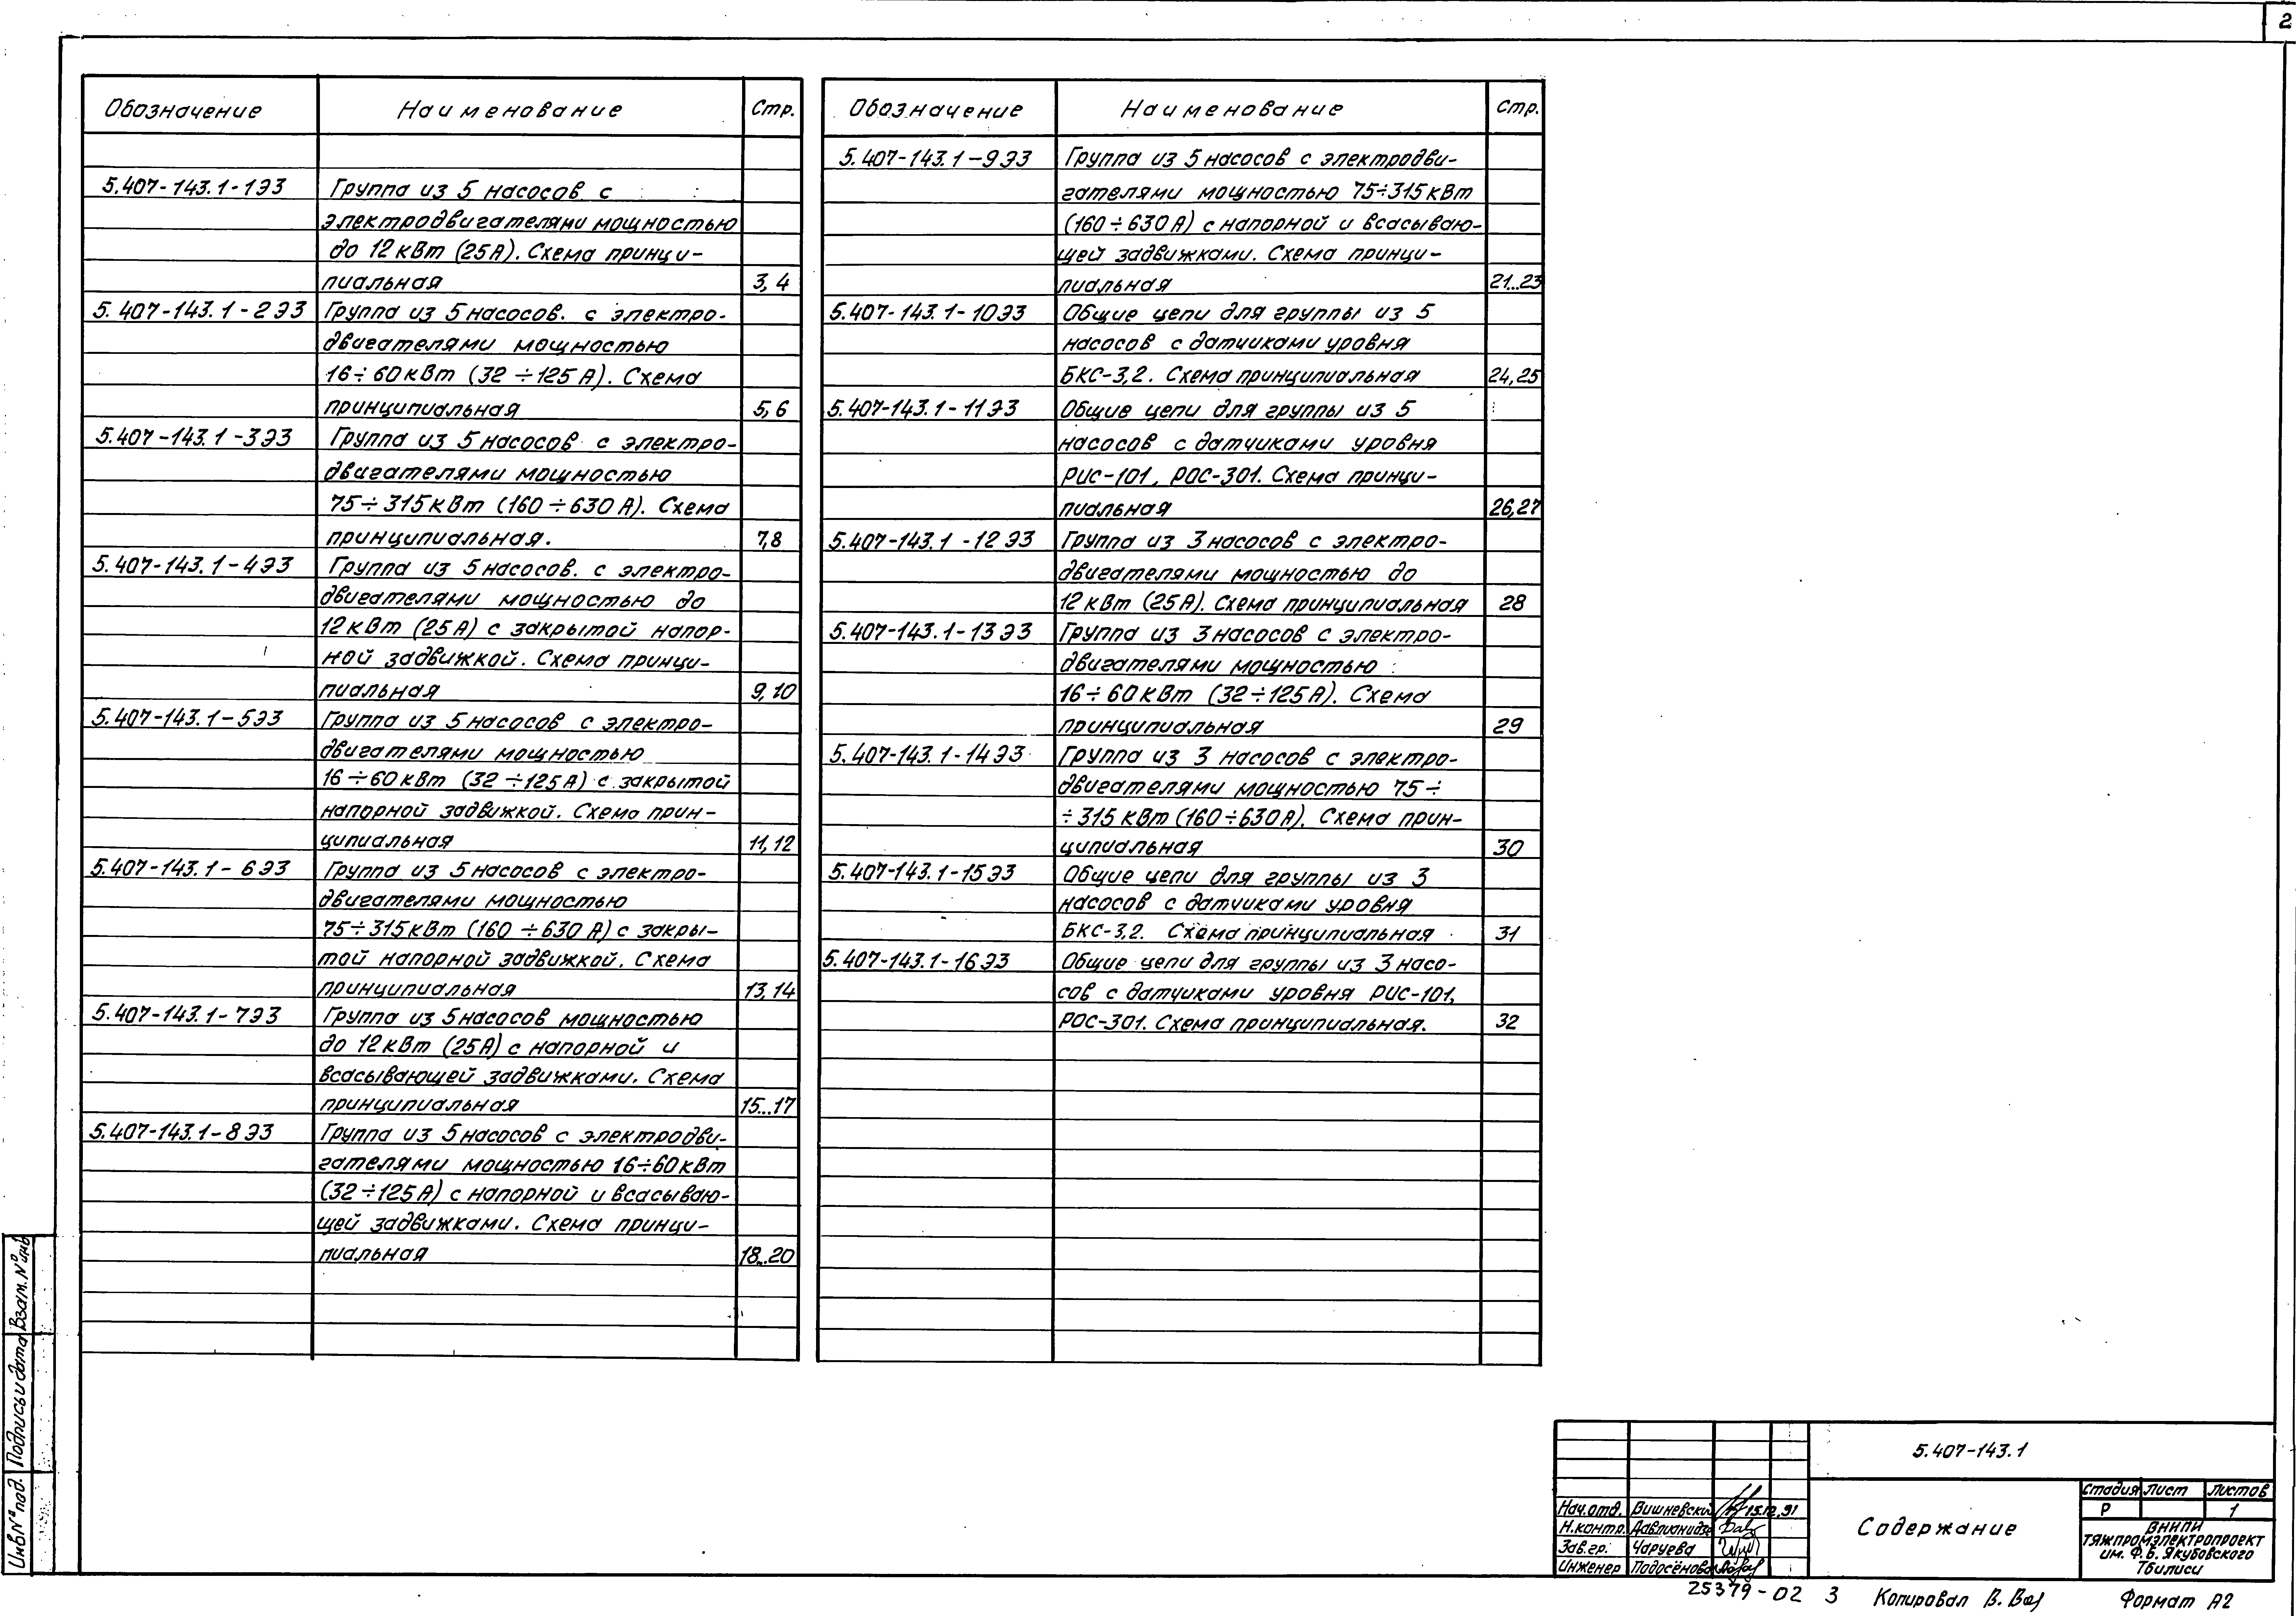 2
Обозначение Наименование Стр.
5.407-143.1-1ЭЗ Группа из 5 насосов с
электродвигателями мощностью
до 12 кВт (25А). Схема принци-
пиальная 3,4
5.407-143.1-2ЭЗ Группа из 5 насосов. с электро-
двигателями мощностью
16÷60кВт (32÷125А). Схема
принципиальная 5,6
5.407-143.1-3ЭЗ Группа из 5 насосов с электро-
двигателями мощностью
75÷315кВт (160÷630А). Схема
принципиальная. 7,8
5.407-143.1-4ЭЗ Группа из 5 насосов. с электро-
двигателями мощностью до
12кВт (25А) с закрытой напор-
ной задвижкой. Схема принци-
пиальная 9,10
5.407-143.1-5ЭЗ Группа из 5 насосов с электро-
двигателями мощностью
16÷60кВт (32÷125А) с закрытой
напорной задвижкой. Схема прин-
ципиальная 11,12
5.407-143.1-6ЭЗ Группа из 5 насосов с электро-
двигателями мощностью
75÷315кВт (160÷630А) с закры-
той напорной задвижкой. Схема
принципиальная 13,14
5.407-143.1-7ЭЗ Группа из 5 насосов мощностью
до 12кВт (25А) с напорной и
всасывающей задвижками. Схема
принципиальная 15...17
5.407-143.1-8ЭЗ Группа из 5 насосов с электродви-
гателями мощностью 16÷60кВт
(32÷125А) с напорной и всасываю-
щей задвижками. Схема принци-
пиальная 18...20
Обозначение Наименование Стр.
5.407-143.1-9ЭЗ Группа из 5 насосов с электродви-
гателями мощностью 75÷315кВт
(160÷630А) с напорной и всасываю-
щей задвижками. Схема принци-
пиальная 21...23
5.407-143.1-10ЭЗ Общие цепи для группы из 5
насосов с датчиками уровня
БКС-3,2. Схема принципиальная 24,25
5.407-143.1-11ЭЗ Общие цепи для группы из 5
насосов с датчиками уровня
РИС-101, РОС-301. Схема принци-
пиальная 26,27
5.407-143.1-12ЭЗ Группа из 3 насосов с электро-
двигателями мощностью до
12кВт (25А). Схема принципиальная 28
5.407-143.1-13ЭЗ Группа из 3 насосов с электро-
двигателями мощностью
16÷60кВт (32÷125А). Схема
принципиальная 29
5.407-143.1-14ЭЗ Группа из 3 насосов с электро-
двигателями мощностью 75÷
÷315кВт (160÷630А). Схема прин-
ципиальная 30
5.407-143.1-15ЭЗ Общие цепи для группы из 3
насосов с датчиками уровня
БКС-3,2. Схема принципиальная 31
5.407-143.1-16ЭЗ Общие цепи для группы из 3 насо-
сов с датчиками уровня РИС-101,
РОС-301. Схема принципиальная. 32
Инв.№ под. Подпись и дата Взам.№ инв
5.407-143.1
Нач.отд. Вишневский 15.12.91
Н.контр. Давлианидзе
Зав.гр. Чаруева
Инженер Подосёнова
Содержание
Стадия Лист Листов
Р 1
ВНИПИ
ТЯЖПРОМЭЛЕКТРОПРОЕКТ
им. Ф.Б. Якубовского
Тбилиси
25379-02 3 Копировал Формат А2